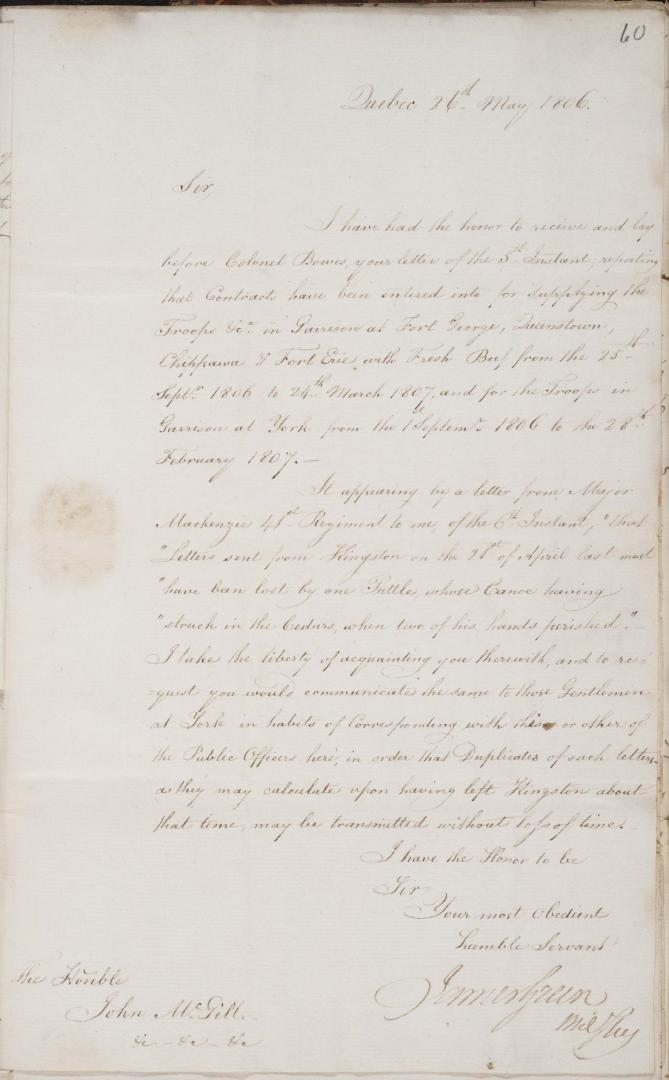 60
Quebec 26th May 1806.
Sir,
I have had the honor to receive and lay
before Colonel Bowes, your letter of the 5th Instant; reporting
that Contracts have been entered into for supplying the
Troops &ca. in Garrison at Fort George, Queenstown,
Chippawa & Fort Erie with Fresh Beef from the 25th
Septr. 1806 to 24th March 1807, and for the Troops in
Garrison at York from the 1st Septemr. 1806 to the 28th
February 1807.—
It appearing by a letter from Major
Mackenzie 41st Regiment to me, of the 6th Instant, "that
"Letters sent from Kingston on the 21st of April last must
"have been lost by one Tuttle, whose Canoe having
"struck in the Cedars, when two of his hands perished".—
I take the liberty of acquainting you therewith, and to re-
-quest you would communicate the same to those Gentlemen
at York in habits of Corresponding with this or other of
the Public Officers here, in order that Duplicates of such letters
as they may calculate upon having left Kingston about
that time, may be transmitted without loss of time.
I have the Honor to be
Sir
Your most obedient
humble Servant
James Green
Mil Secy
The Honble
John McGill.
&c — &c — &c